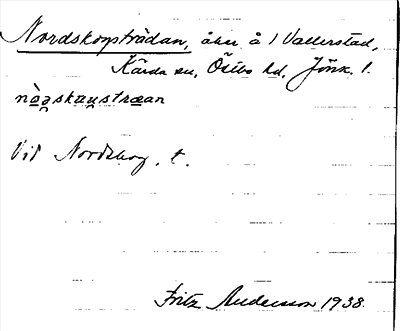 Nordskogsträdan, åker å 1 Vallerstad,
Kärda sn, Östbo hd, Jönk. l.
Vid Nordskog, t.
Fritz Andersson 1938.